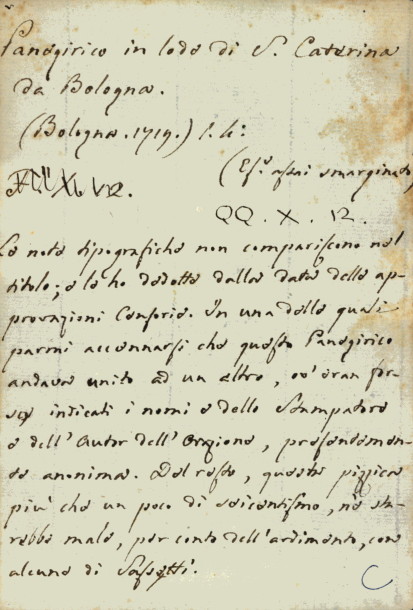 Panegirico in lode di S. Caterina
da Bologna.
(Bologna. 1719.) f. 4:
(Es.e assai smarginato)
XII. VI.
QQ. X. 12.
Le note tipografiche non compariscono nel
titolo; e le ho dedotte dalle date delle ap-
provazioni Censorie. In una delle quali
parmi accennarsi che questo Panegirico
andava unito ad un altro, ov'eran for-
se indicati i nomi e dello Stampatore
e dell'Autor dell'Orazione, presentemen-
te anonima. Del resto, questa pizzica
più che un poco di seicentismo, nè sta-
rebbe male, per conto dell'ardimento, con
alcune di
C